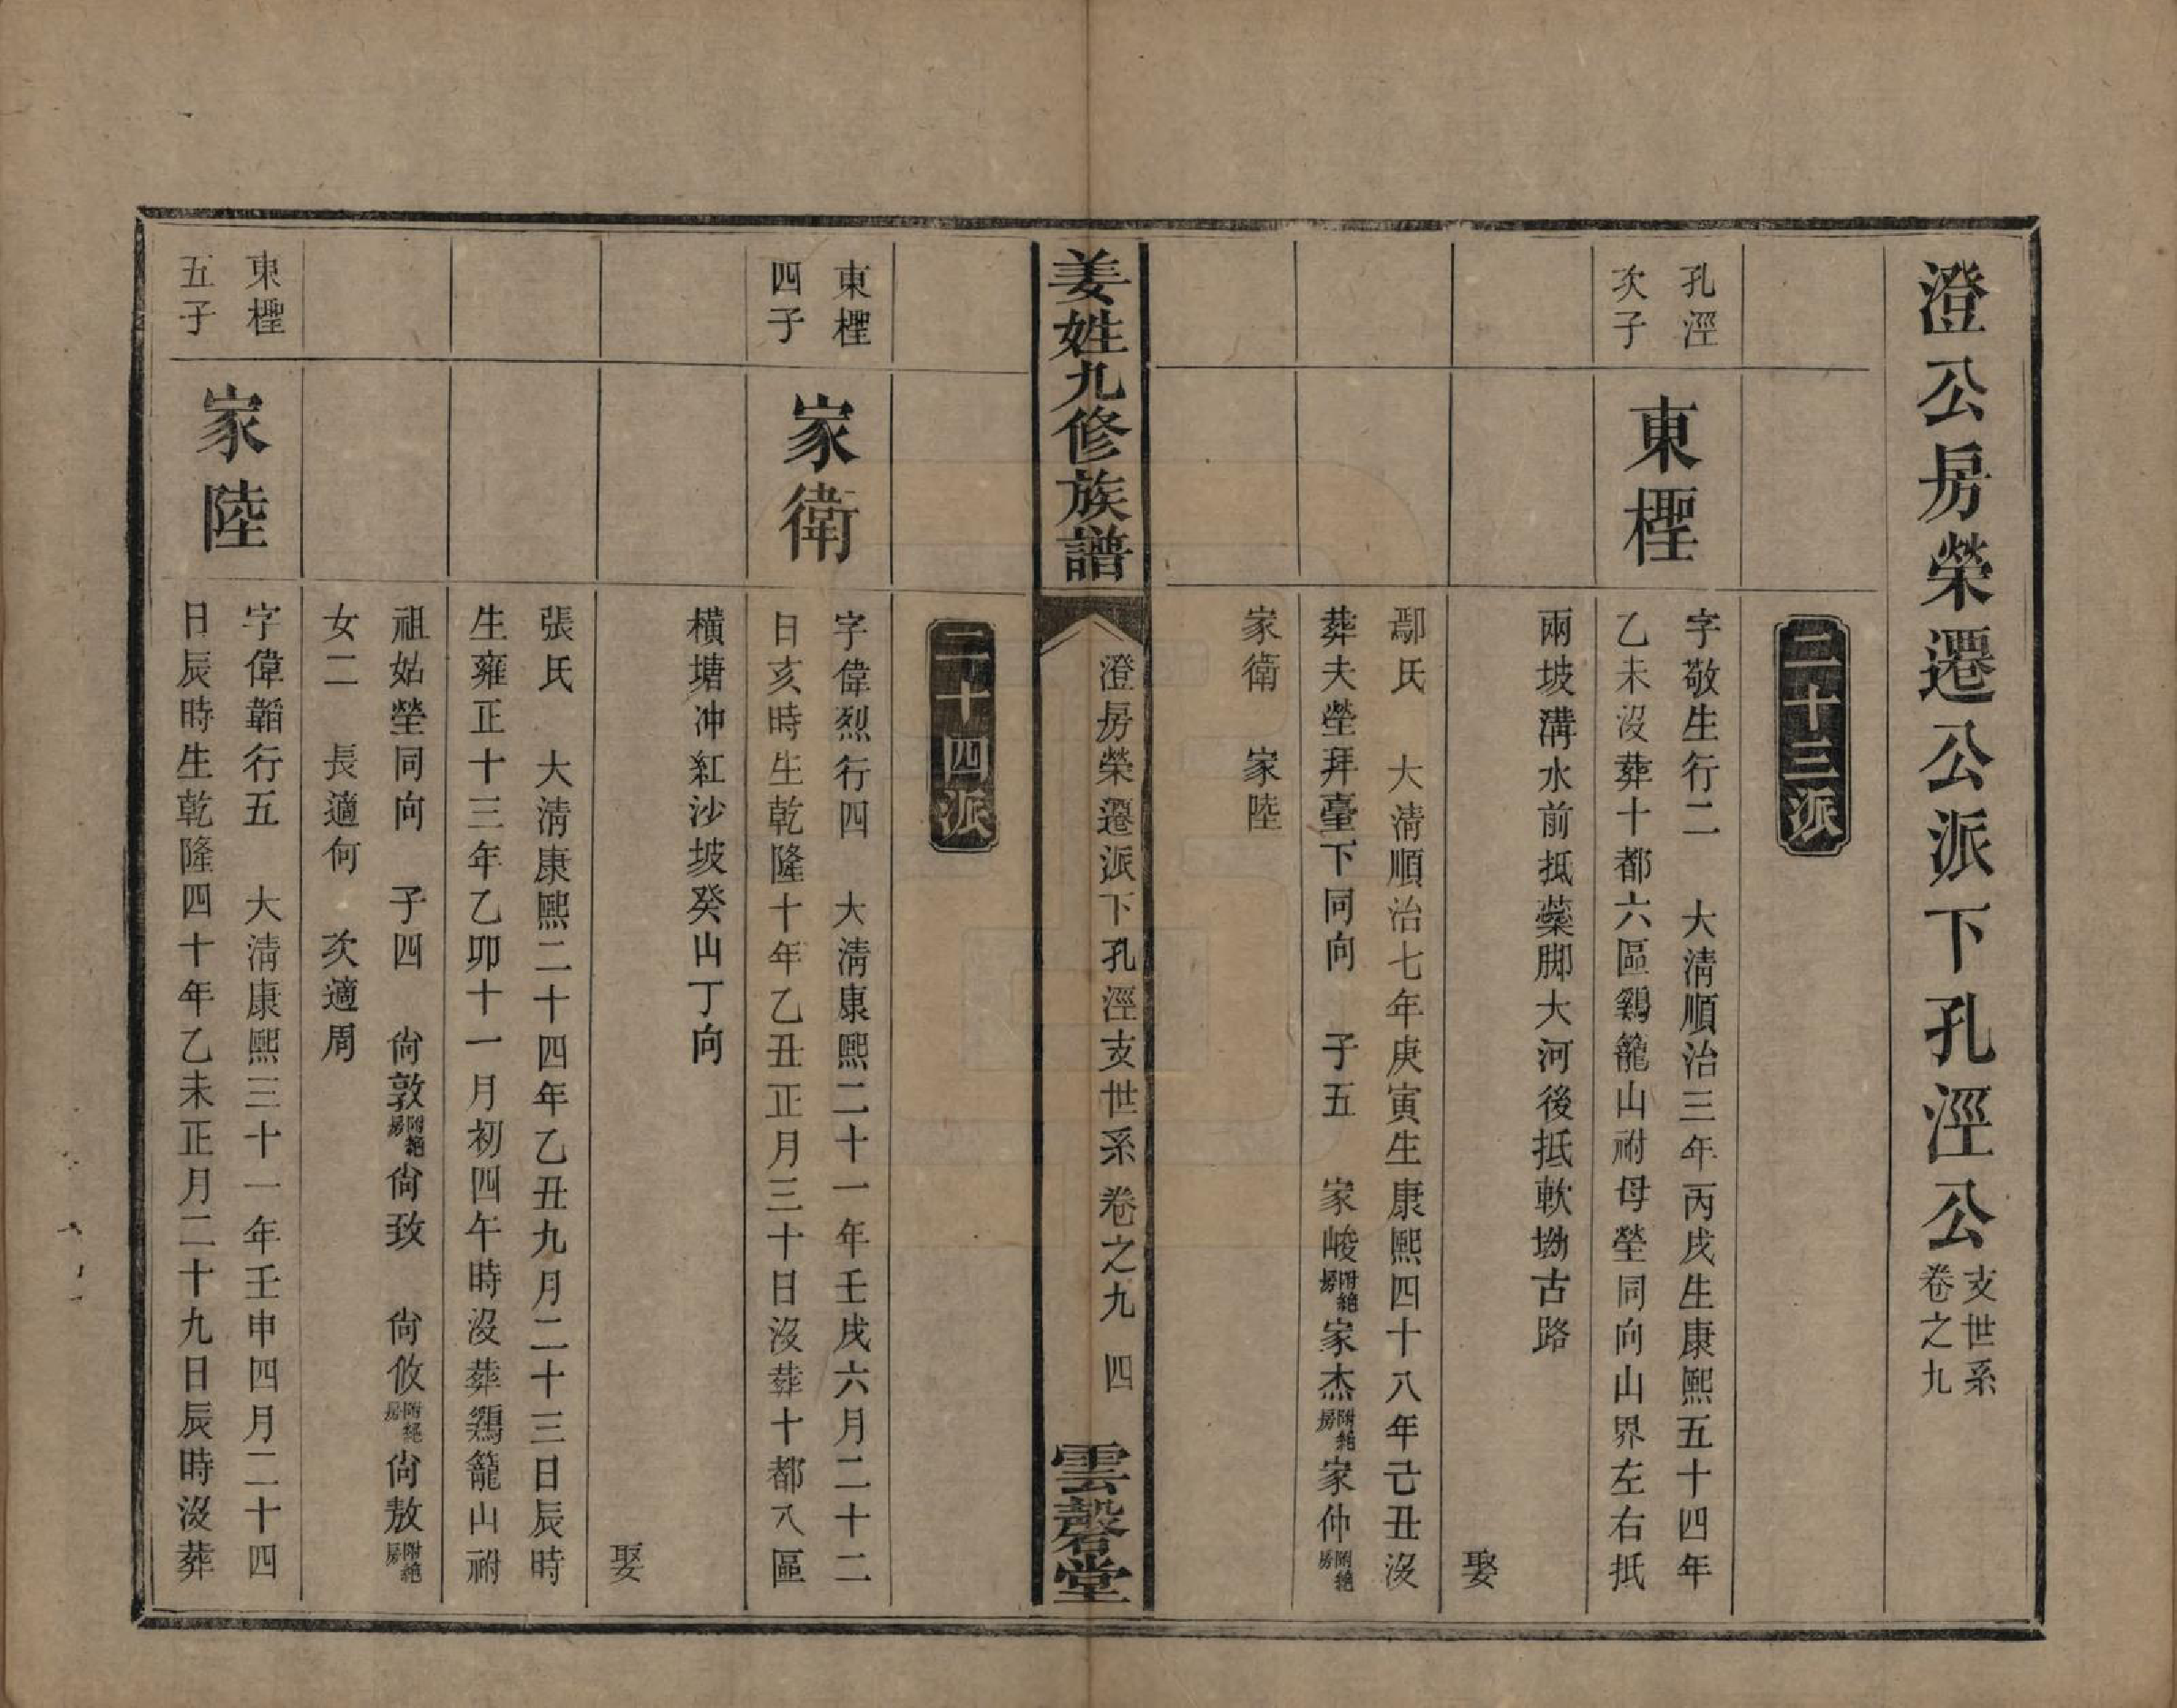 澄公房榮遷公派下孔涇公支世系卷之九
二十三派
孔涇次子
東檉
字敬生行二　大淸順治三年丙戌生康熙五十四年
乙未沒葬十都六區鷄籠山祔母塋同向山界左右抵
兩坡溝水前抵藥脚大河後抵軟坳古路
娶
鄢氏　大淸順治七年庚寅生康熙四十八年己丑沒
葬夫塋拜臺下同向　子五　家峻附絕房家杰附絕房家仲附絕房
家衛　家陸
姜姓九修族譜
澄房榮遷派下孔涇支世系 卷之九 四
雲磬堂
二十四派
東檉四子
家衛
字偉烈行四　大淸康熙二十一年壬戌六月二十二
日亥時生乾隆十年乙丑正月三十日沒葬十都八區
橫塘冲紅沙坡癸山丁向
娶
張氏　大淸康熙二十四年乙丑九月二十三日辰時
生雍正十三年乙卯十一月初四午時沒葬鷄籠山祔
祖姑塋同向　子四　尙敦附絕房尙致　尙攸附絕房尙敖附絕房
女二　長適何　次適周
東檉五子
家陸
字偉韜行五　大淸康熙三十一年壬申四月二十四
日辰時生乾隆四十年乙未正月二十九日辰時沒葬